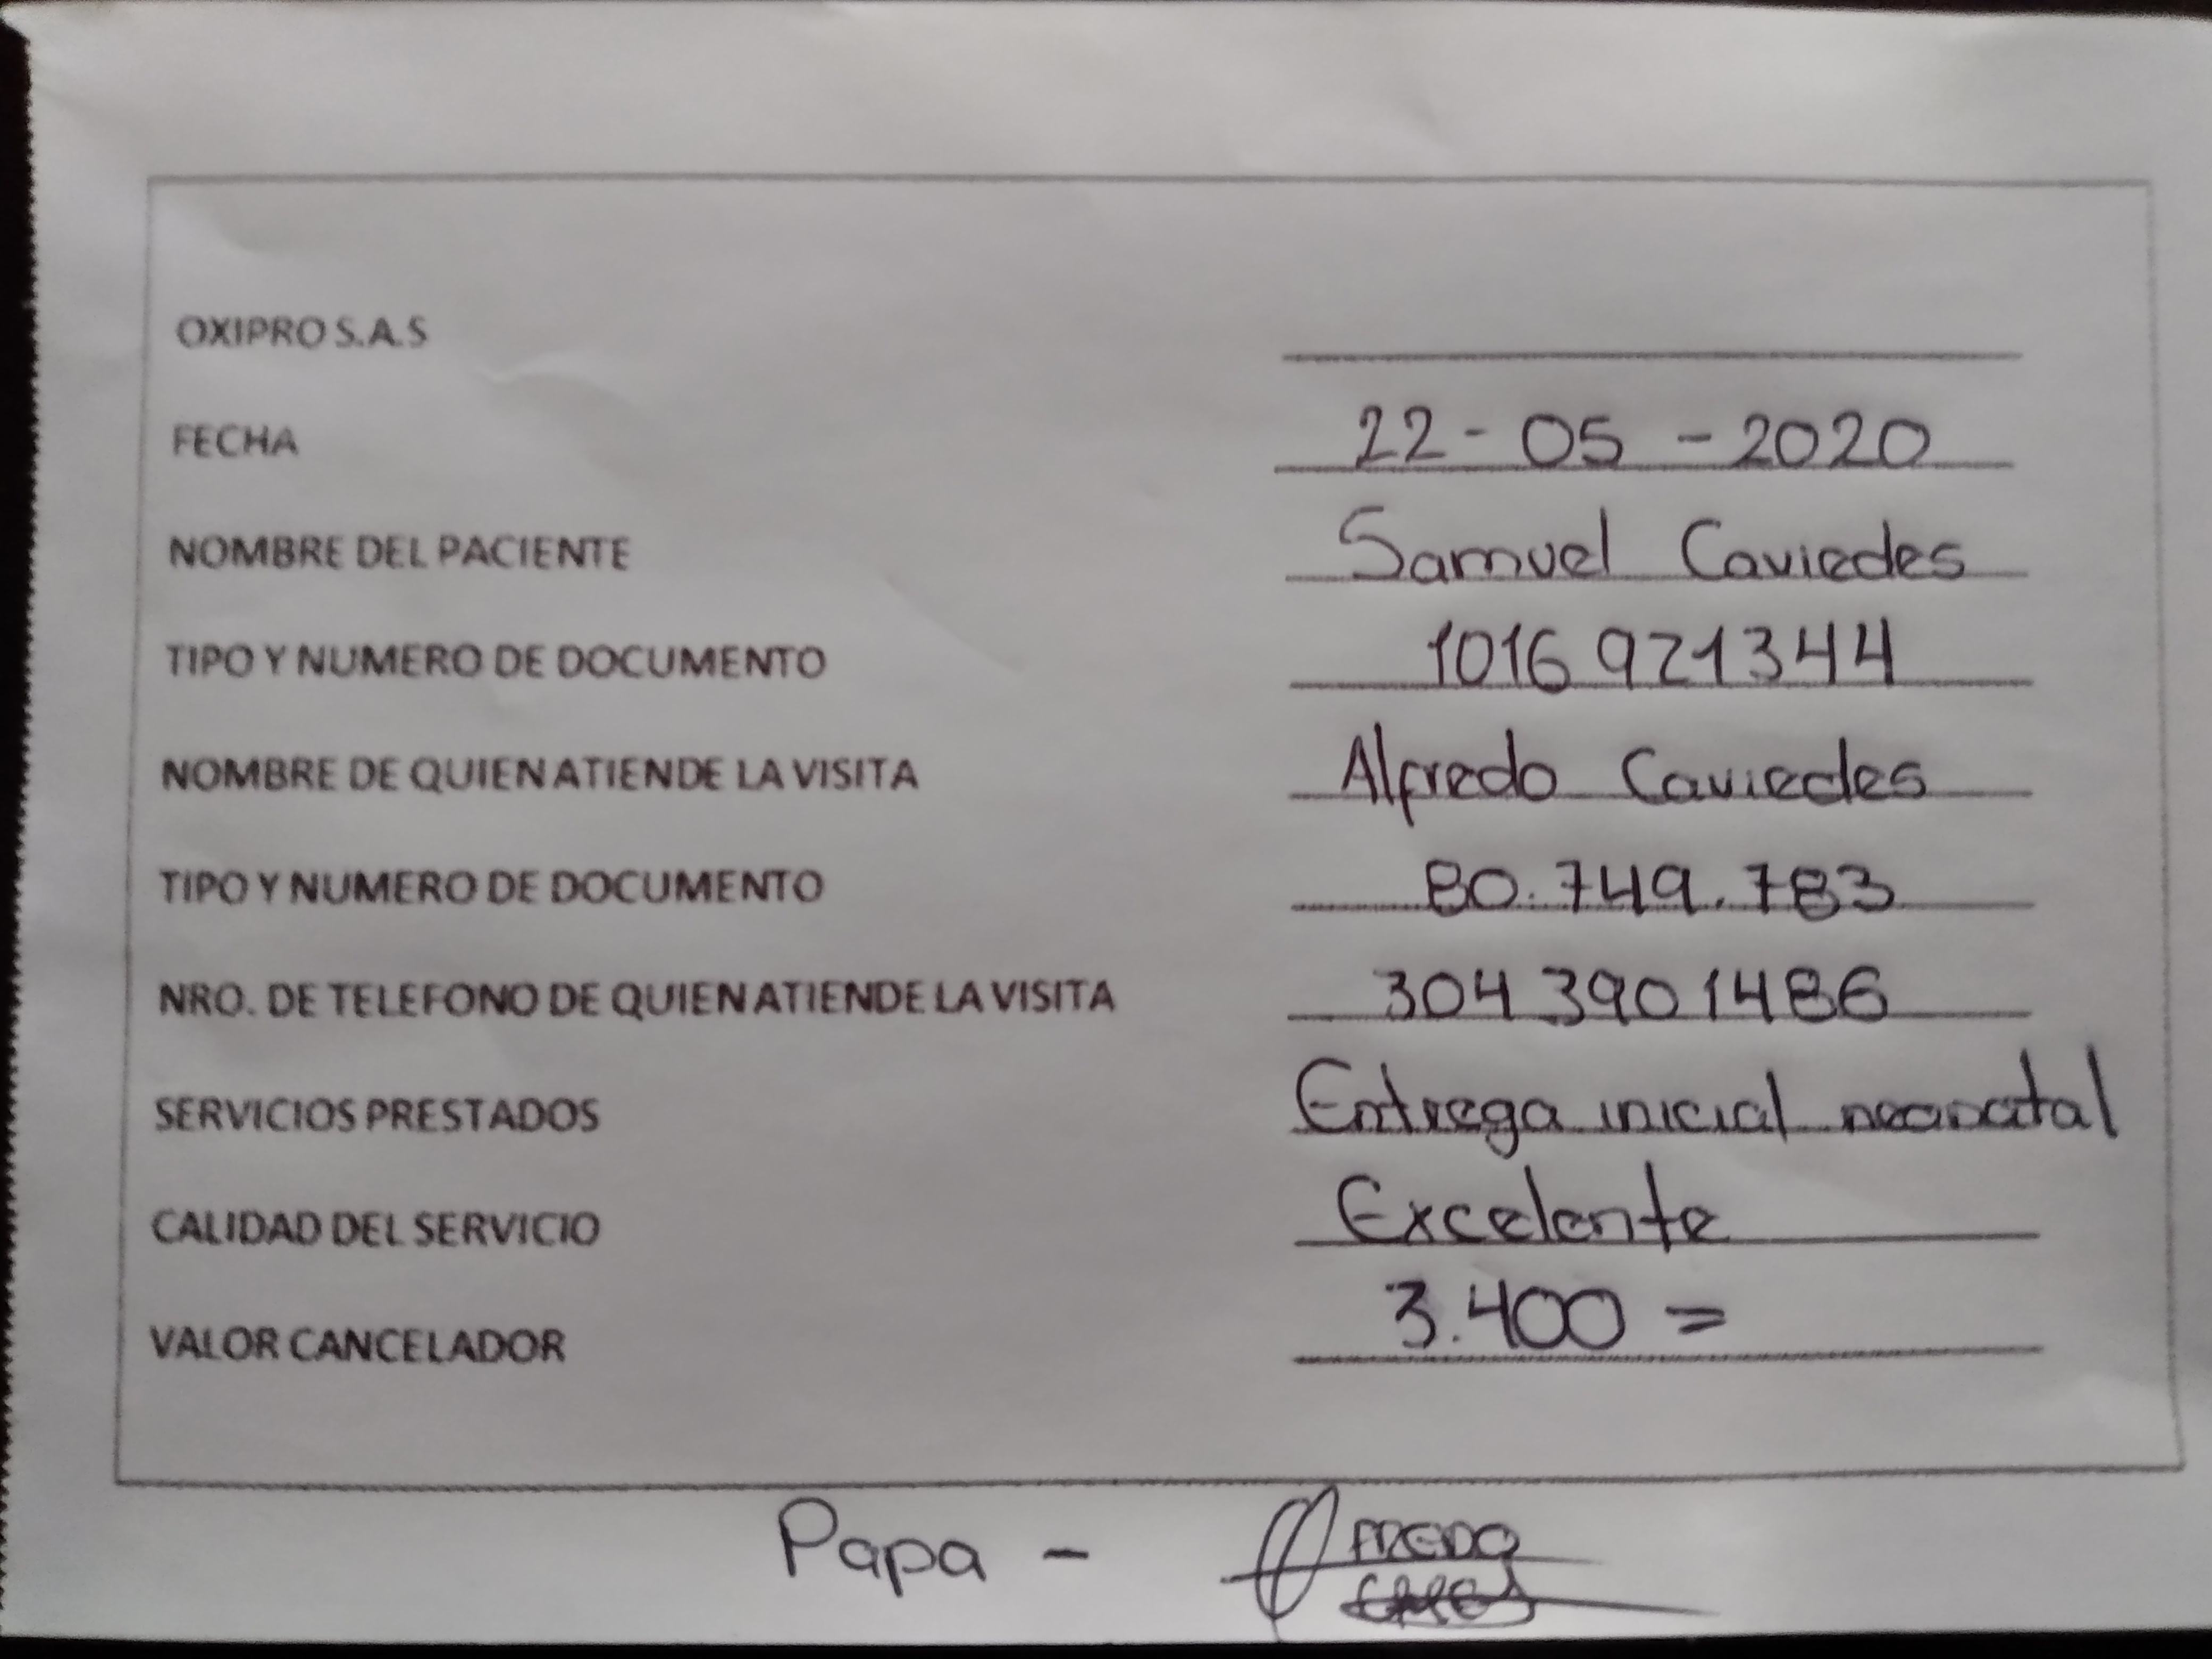 OXIPRO S.A.S
FECHA 22-05-2020
NOMBRE DEL PACIENTE Samuel Caviedes
TIPO Y NUMERO DE DOCUMENTO 1016921344
NOMBRE DE QUIEN ATIENDE LA VISITA Alfredo Caviedes
TIPO Y NUMERO DE DOCUMENTO 80.749.783
NRO. DE TELEFONO DE QUIEN ATIENDE LA VISITA 304 3901486
SERVICIOS PRESTADOS Entrega inicial neonatal
CALIDAD DEL SERVICIO Excelente
VALOR CANCELADOR 3.400 =
Papa -